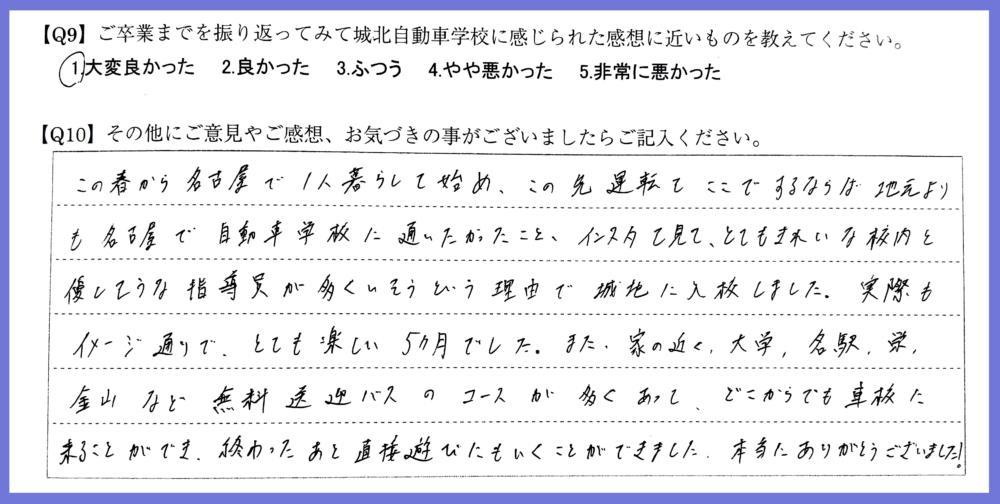 【Q9】ご卒業までを振り返ってみて城北自動車学校に感じられた感想に近いものを教えてください。
1.大変良かった 2.良かった 3.ふつう 4.やや悪かった 5.非常に悪かった
【Q10】その他にご意見やご感想、お気づきの事がございましたらご記入ください。
この春から名古屋で1人暮らしを始め、この先運転をここでするならば地元より
も名古屋で自動車学校に通いたかったこと、インスタを見て、とてもきれいな校内と
優しそうな指導員が多くいそうという理由で城北に入校しました。実際も
イメージ通りで、とても楽しい5ヶ月でした。また、家の近く、大学、名駅、栄、
金山など無料送迎バスのコースが多くあって、どこからでも車校に
来ることができ、終わったあと直接遊びにもいくことができました。本当にありがとうございました!